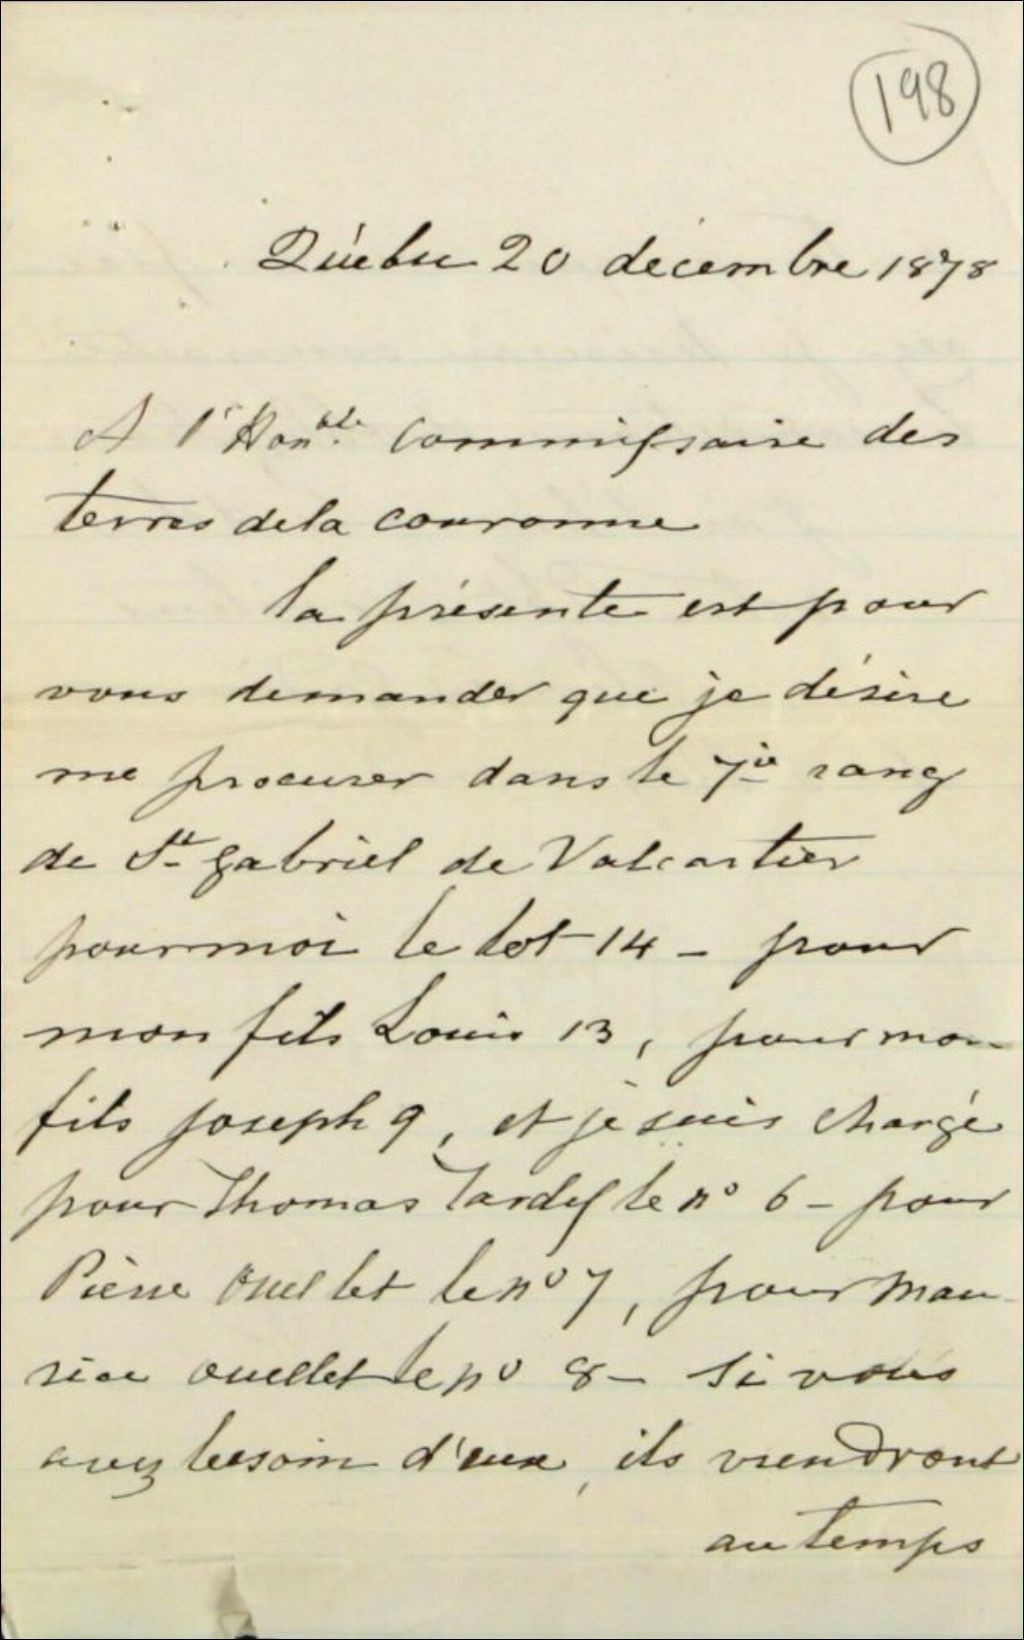 198
Québec 20 décembre 1878
A l'Honble. Commissaire des
terres de la couronne
la présente est pour
vous demander que je désire
me procurer dans le 7ie rang
de St gabriel de Valcartier
pour moi le lot 14 - pour
mon fils Louis 13, pour mon
fils joseph 9, et je suis chargé
pour Thomas Tardif le no 6 - pour
Pierre Ouellet le no 7, pour Mau-
rice ouellet le no 8 - si vous
avez besoin d'eux, ils viendront
au temps